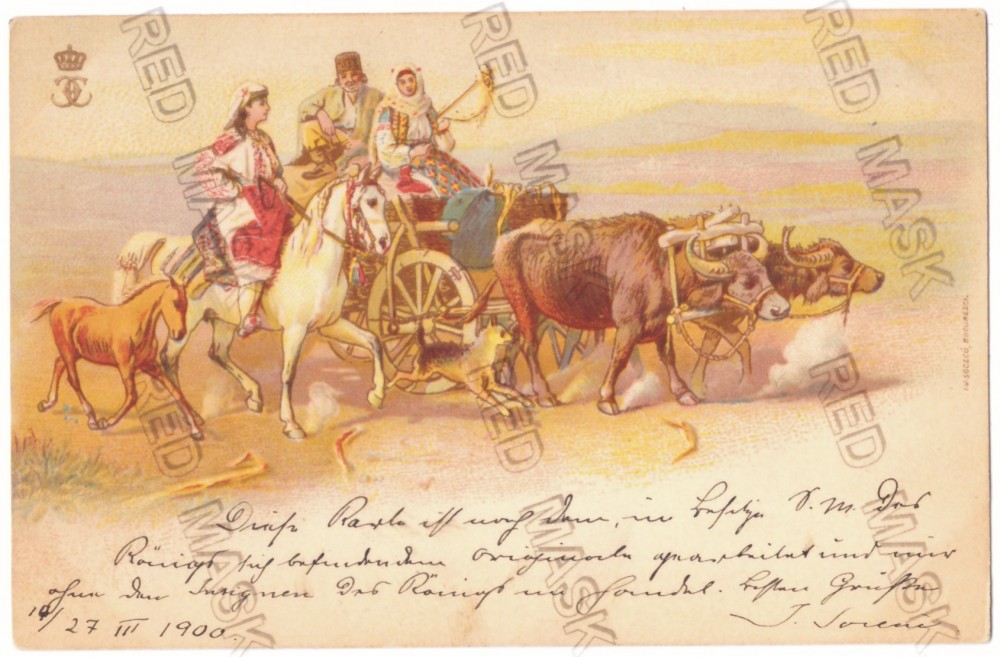 I.V. SOCECU, BUCURESCI.
Diese Karte ist nach dem, im Besitze S. M. des
Königs sich befindenden Originale gearbeitet und nur
ohne den Insignen des Königs im Handel. besten Grüße
14/27 III 1900.
RED MASK
RED MASK
RED MASK
RED MASK
RED MASK
RED MASK